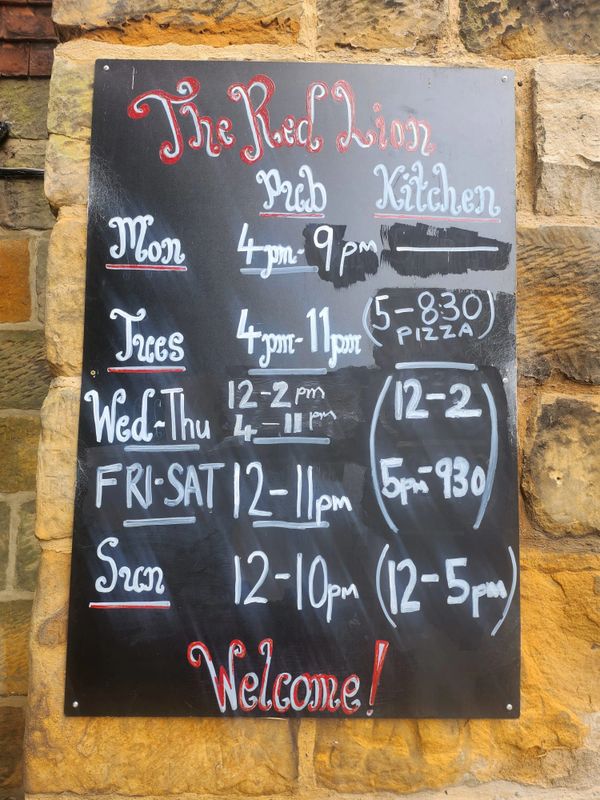 The Red Lion
Pub Kitchen
Mon 4pm-9pm —
Tues 4pm-11pm (5-8:30)
PIZZA
Wed-Thu 12-2pm (12-2
4-11pm
FRI-SAT 12-11pm 5pm-930)
Sun 12-10pm (12-5pm)
Welcome!